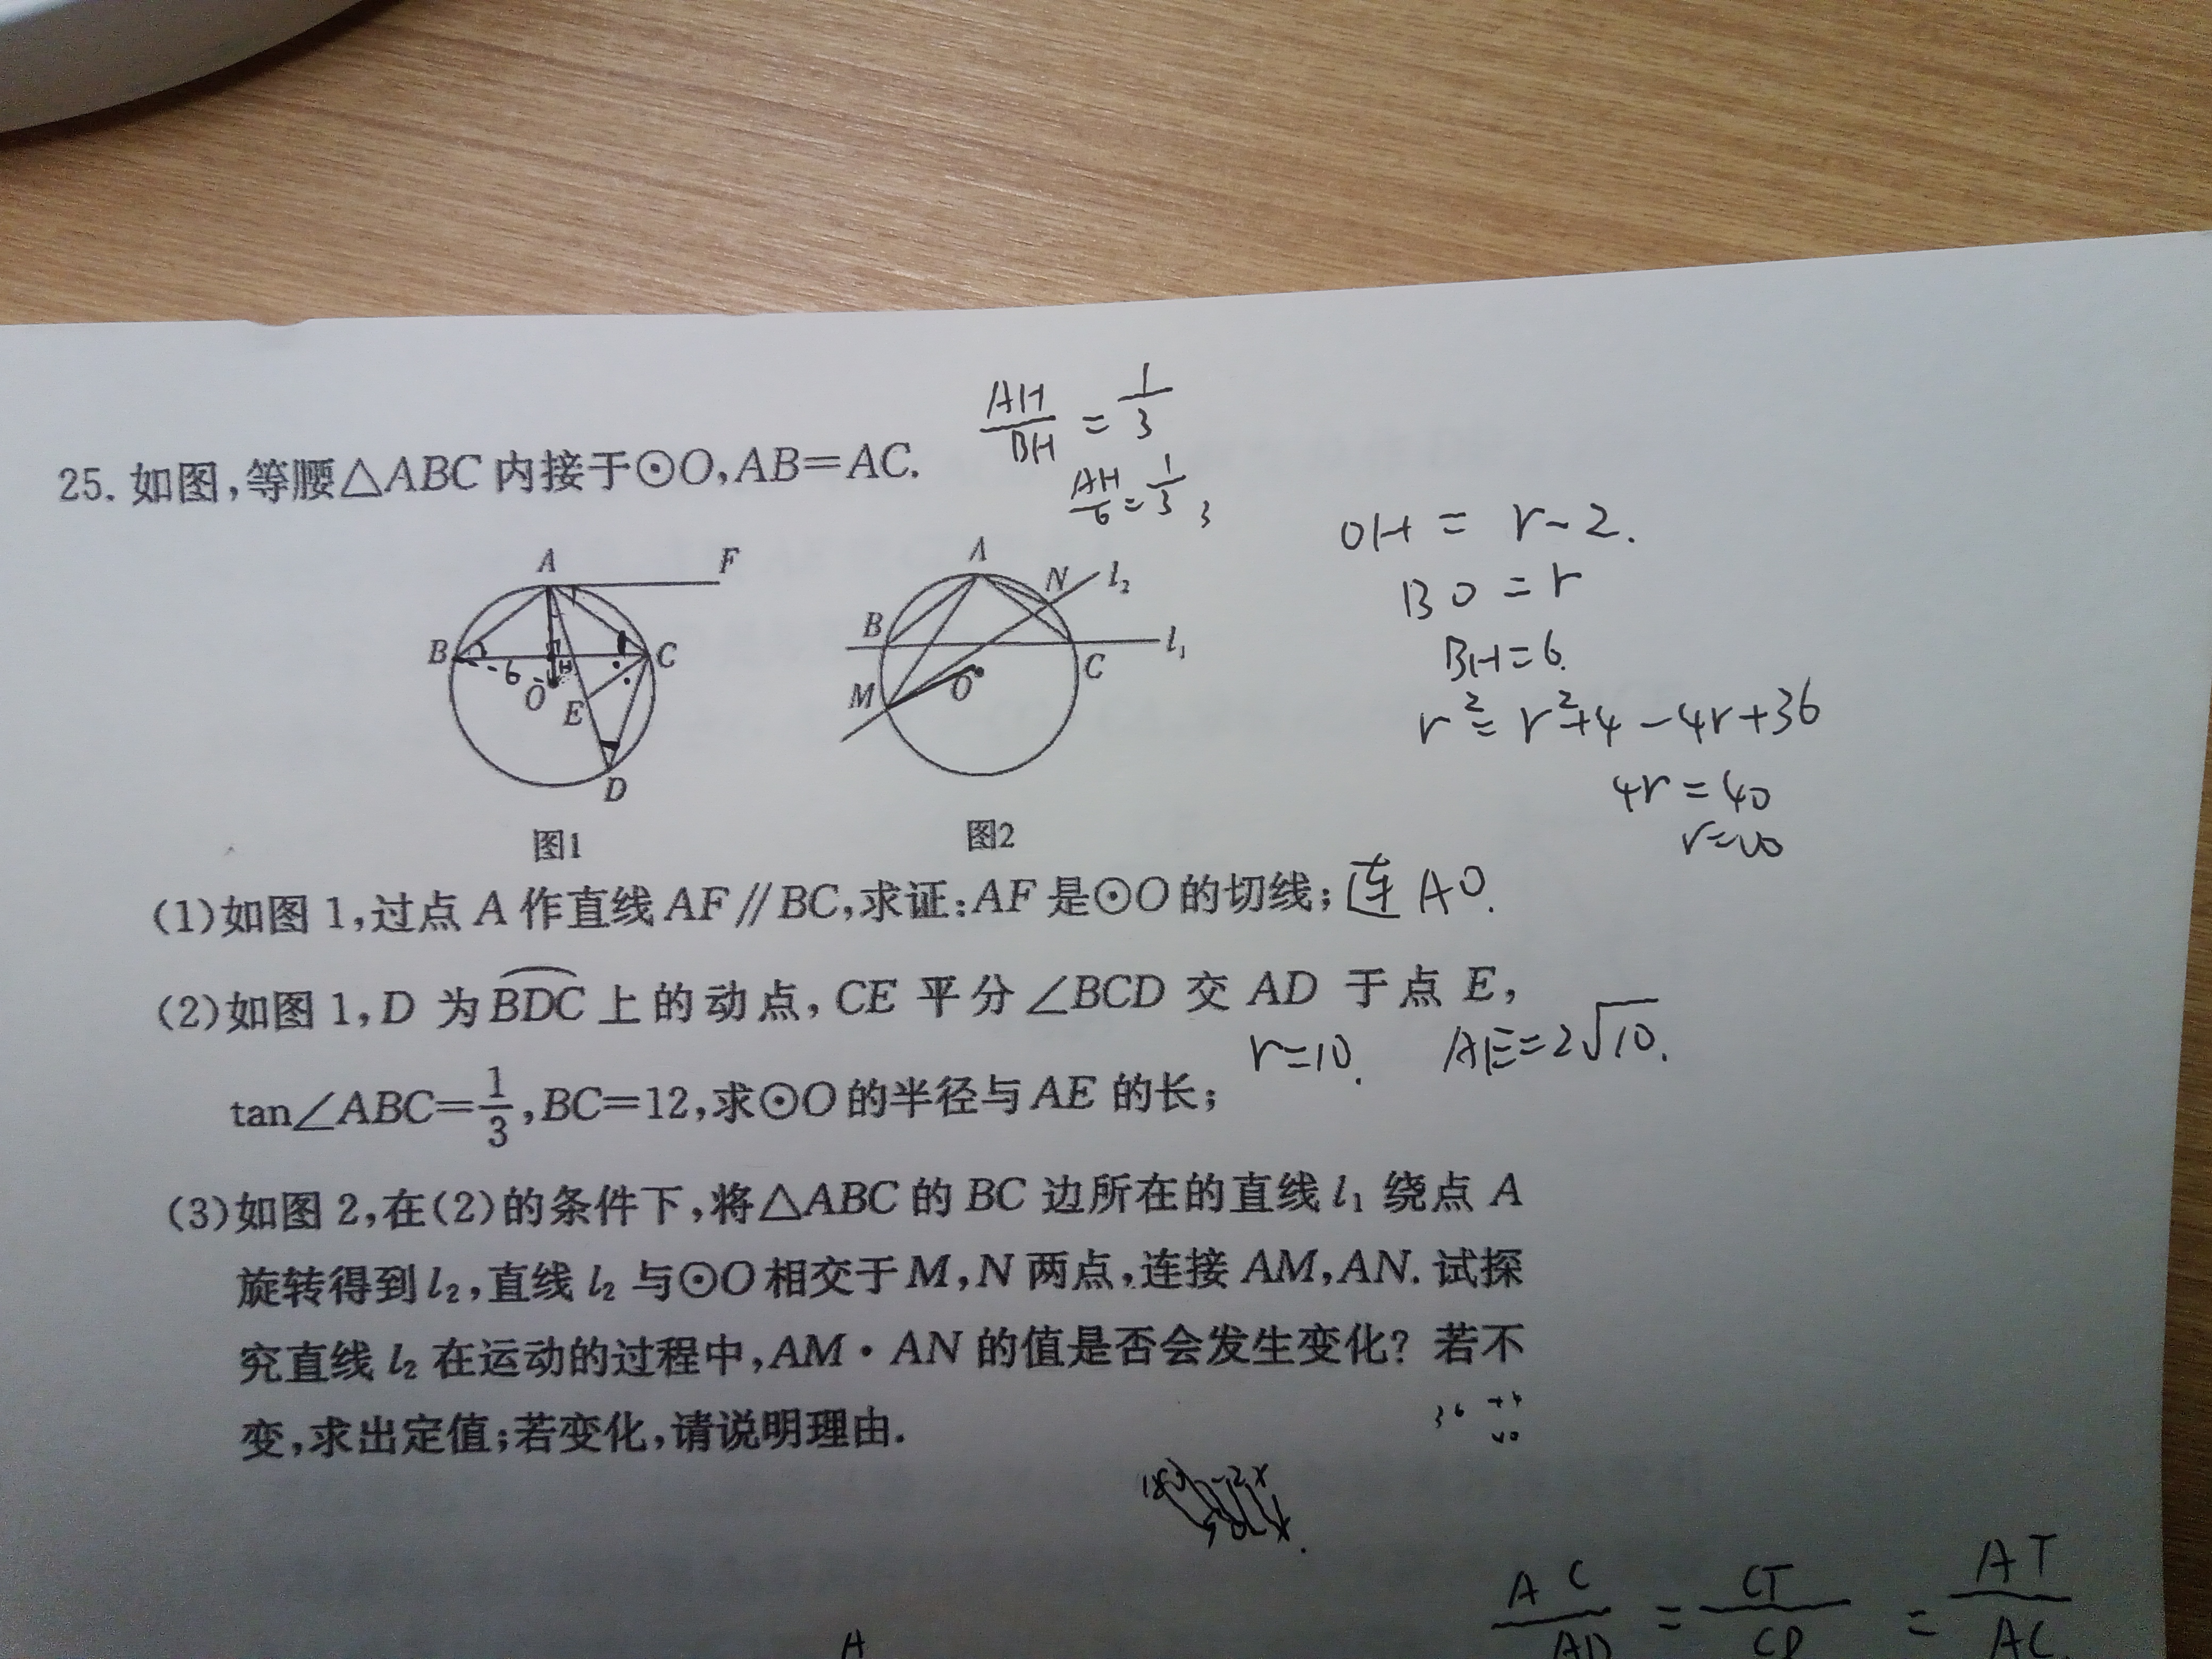 AH/BH = 1/3
25. 如图,等腰△ABC 内接于⊙O,AB=AC.
AH/6 = 1/3
3
OH = r-2.
BO = r
BH=6.
r²=r²+4-4r+36
4r=40
A F
B 6 H C
O E
D
图1
A N l₂
B l₁
M O C
图2
(1)如图 1,过点 A 作直线 AF∥BC,求证:AF 是⊙O 的切线; 连 AO.
(2)如图 1,D 为⌒BDC 上的动点,CE 平分∠BCD 交 AD 于点 E,
r=10. AE=2√10.
tan∠ABC=1/3,BC=12,求⊙O 的半径与 AE 的长;
(3)如图 2,在(2)的条件下,将△ABC 的 BC 边所在的直线 l₁ 绕点 A
旋转得到 l₂,直线 l₂ 与⊙O 相交于 M,N 两点,连接 AM,AN. 试探
究直线 l₂ 在运动的过程中,AM·AN 的值是否会发生变化? 若不
变,求出定值;若变化,请说明理由.
36
A
AC/AD = CT/CD = AT/AC